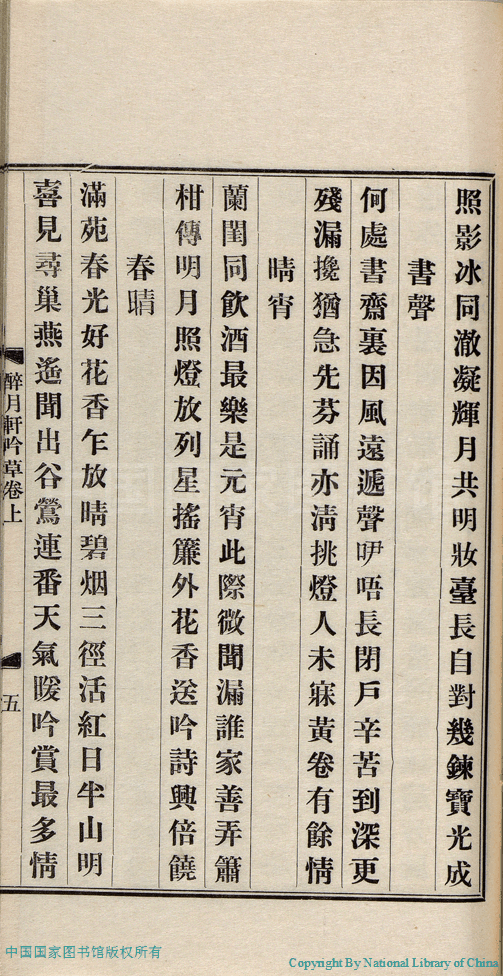 照影冰同澈凝輝月共明妝臺長自對幾鍊寶光成
書聲
何處書齋裏因風遠遞聲咿唔長閉戶辛苦到深更
殘漏攙猶急先芬誦亦淸挑燈人未寐黃卷有餘情
晴宵
蘭閨同飮酒最樂是元宵此際微聞漏誰家善弄簫
柑傳明月照燈放列星搖簾外花香送吟詩興倍饒
春晴
滿苑春光好花香乍放晴碧烟三徑活紅日半山明
喜見尋巢燕遙聞出谷鶯連番天氣暖吟賞最多情
醉月軒吟草卷上
五
中国国家图书馆版权所有
Copyright By National Library of China